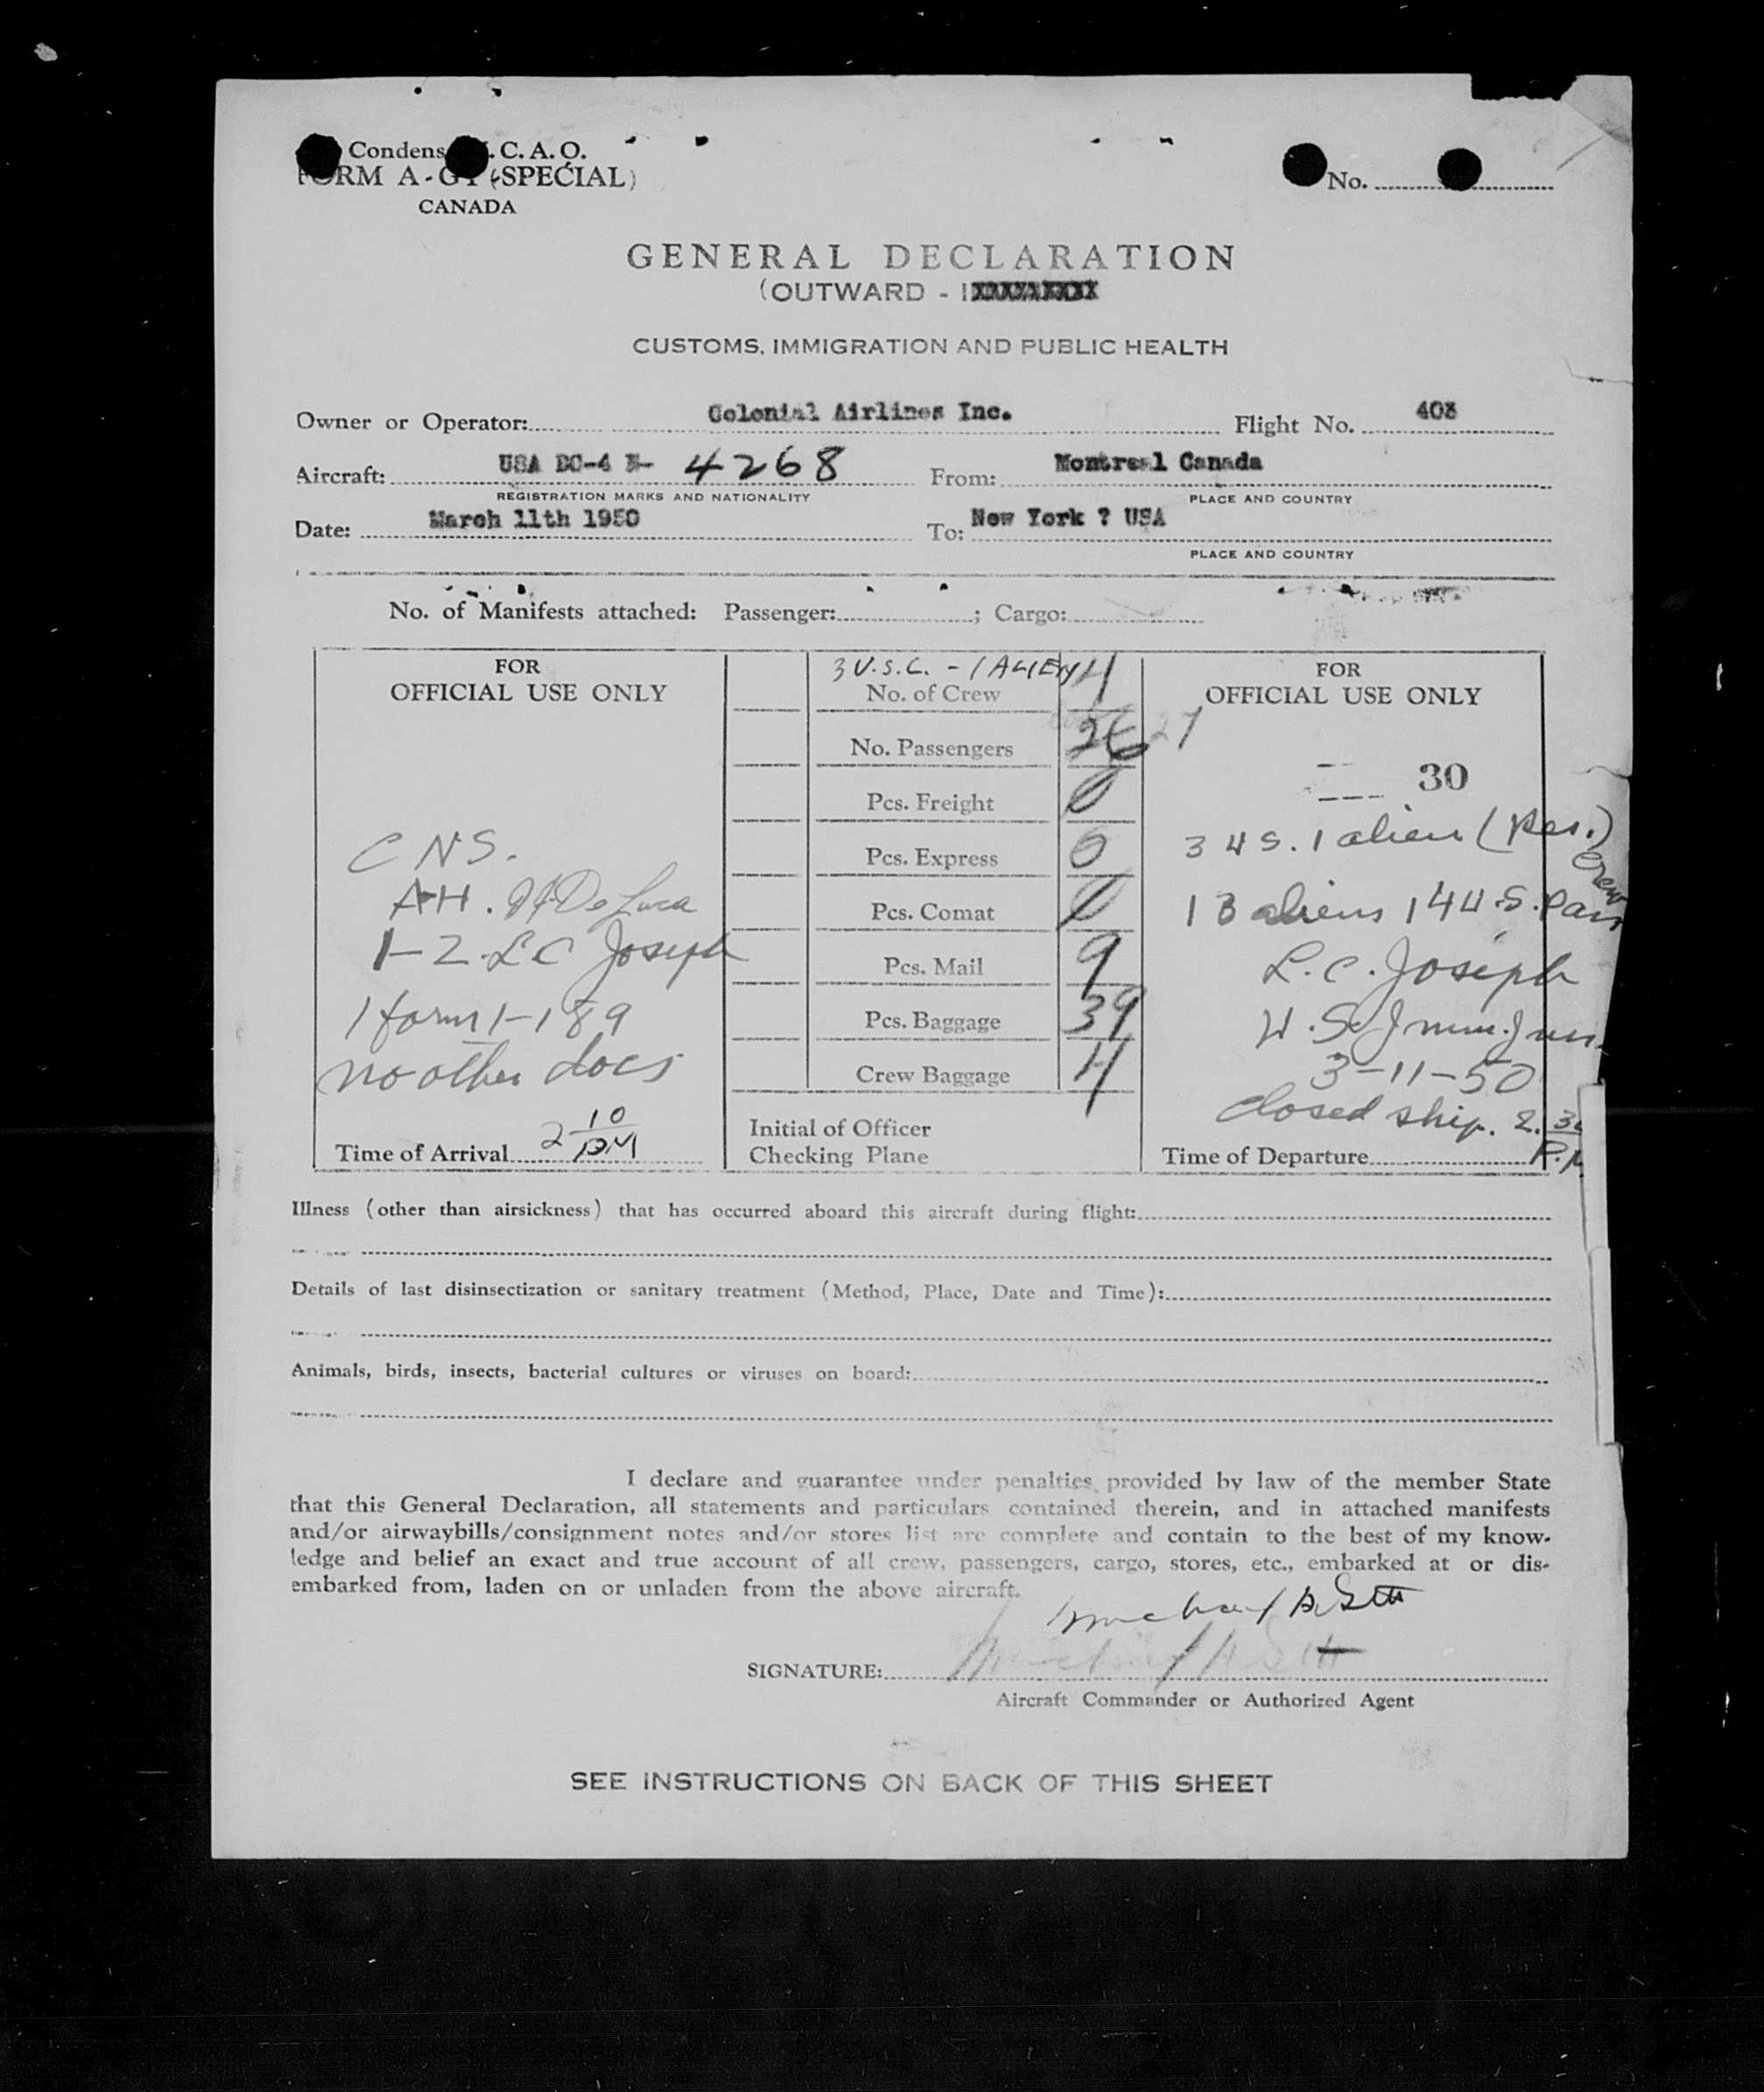 Condens C. A. O.
FORM A - G1 (SPECIAL)
CANADA
No.
GENERAL DECLARATION
(OUTWARD - I
CUSTOMS, IMMIGRATION AND PUBLIC HEALTH
Owner or Operator: Colonial Airlines Inc. Flight No. 403
Aircraft: USA DC-4 N- 4268 From: Montreal Canada
REGISTRATION MARKS AND NATIONALITY PLACE AND COUNTRY
Date: March 11th 1950 To: New York ? USA
PLACE AND COUNTRY
No. of Manifests attached: Passenger: ; Cargo:
FOR
OFFICIAL USE ONLY
C N S.
AH. De Luca
1-2 L C Joseph
1 form 1-189
no other docs
Time of Arrival 2 10 PM
3 U.S.C. - 1 ALIEN 4
No. of Crew
No. Passengers 26 27
Pcs. Freight 0
Pcs. Express 0
Pcs. Comat 0
Pcs. Mail 9
Pcs. Baggage 39
Crew Baggage 4
Initial of Officer
Checking Plane
FOR
OFFICIAL USE ONLY
30
3 US. 1 alien (Res.)
crew
13 aliens 14 U.S. Pass
L.C. Joseph
U.S. Imm. Ins.
3-11-50
closed ship. 2.30
P.M
Time of Departure
Illness (other than airsickness) that has occurred aboard this aircraft during flight:
Details of last disinsectization or sanitary treatment (Method, Place, Date and Time):
Animals, birds, insects, bacterial cultures or viruses on board:
I declare and guarantee under penalties provided by law of the member State
that this General Declaration, all statements and particulars contained therein, and in attached manifests
and/or airwaybills/consignment notes and/or stores list are complete and contain to the best of my know-
ledge and belief an exact and true account of all crew, passengers, cargo, stores, etc., embarked at or dis-
embarked from, laden on or unladen from the above aircraft.
Michael
SIGNATURE: Michael
Aircraft Commander or Authorized Agent
SEE INSTRUCTIONS ON BACK OF THIS SHEET